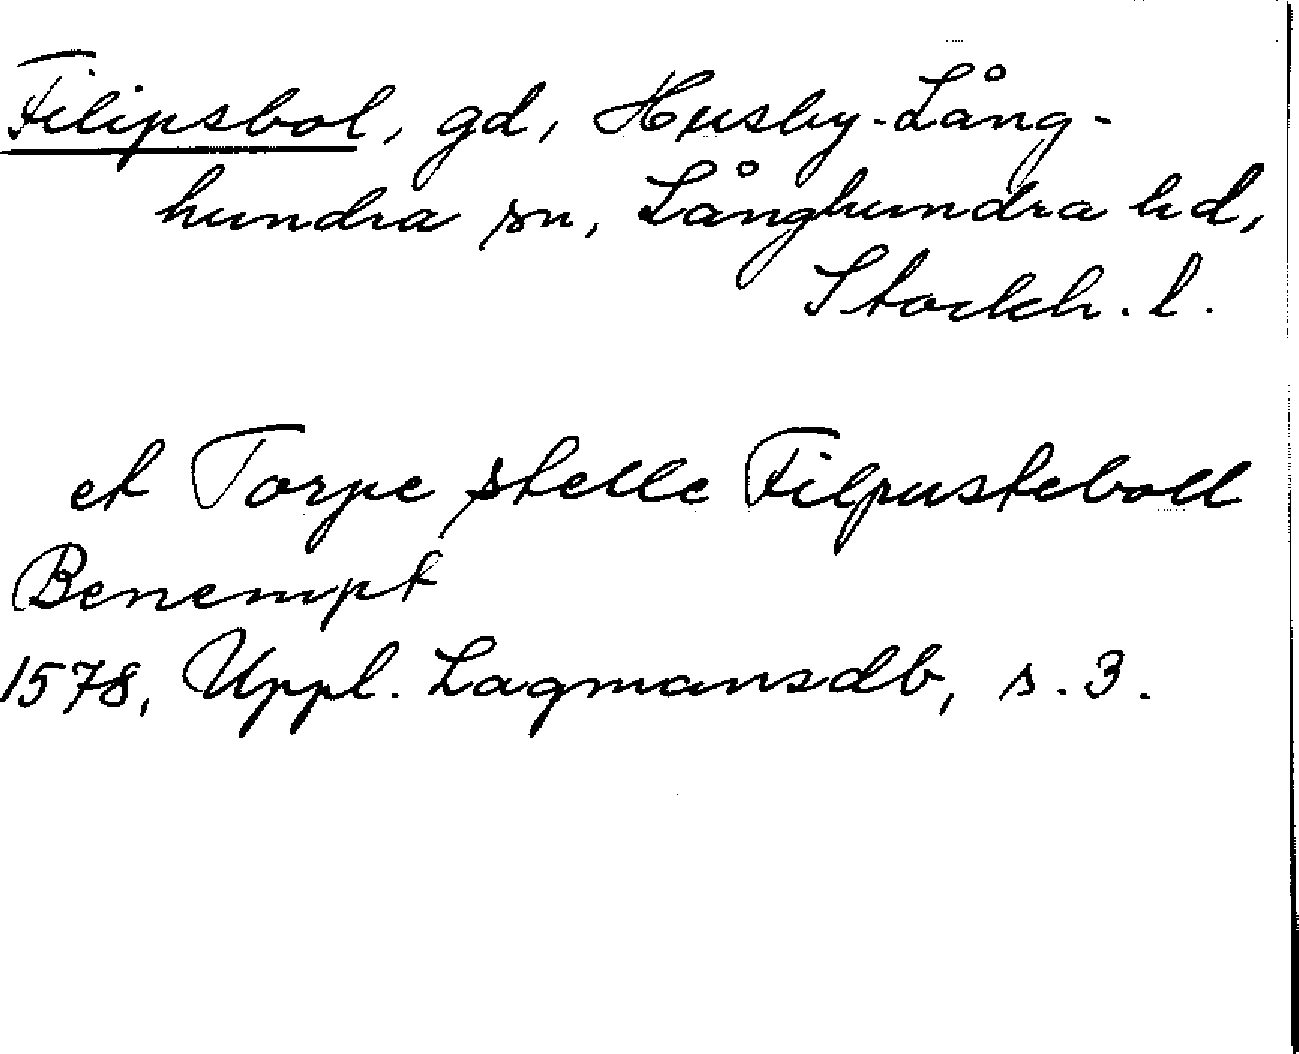 Filipsbol, gd, Husby-Lång-
hundra sn, Långhundra hd,
Stockh. l.
et Torpe stelle Filpusteboll
Benempt
1578, Uppl. Lagmansdb, s. 3.